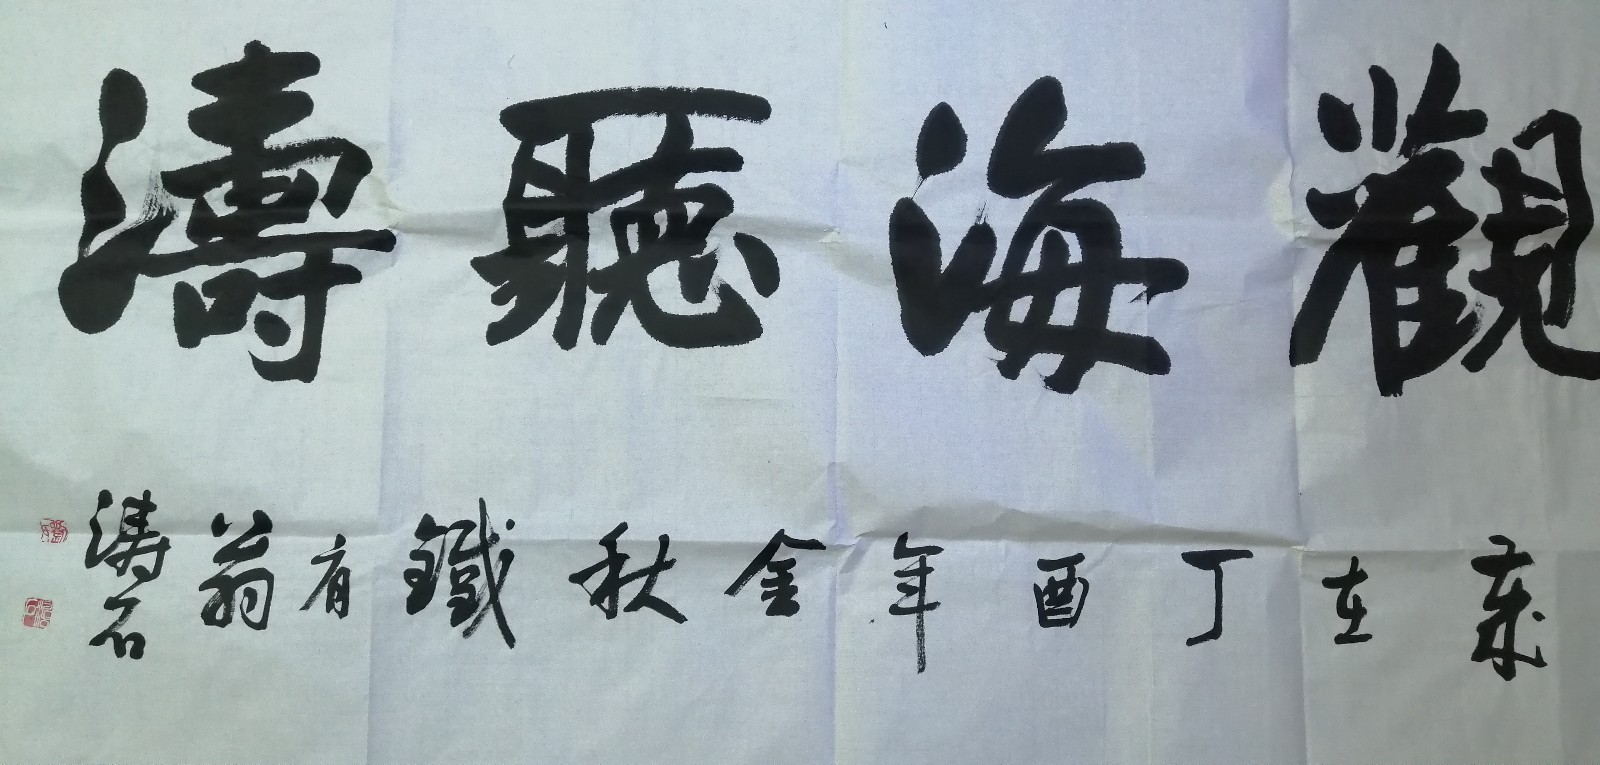 觀海聽濤
歲在丁酉年金秋鐵肩翁
濤石